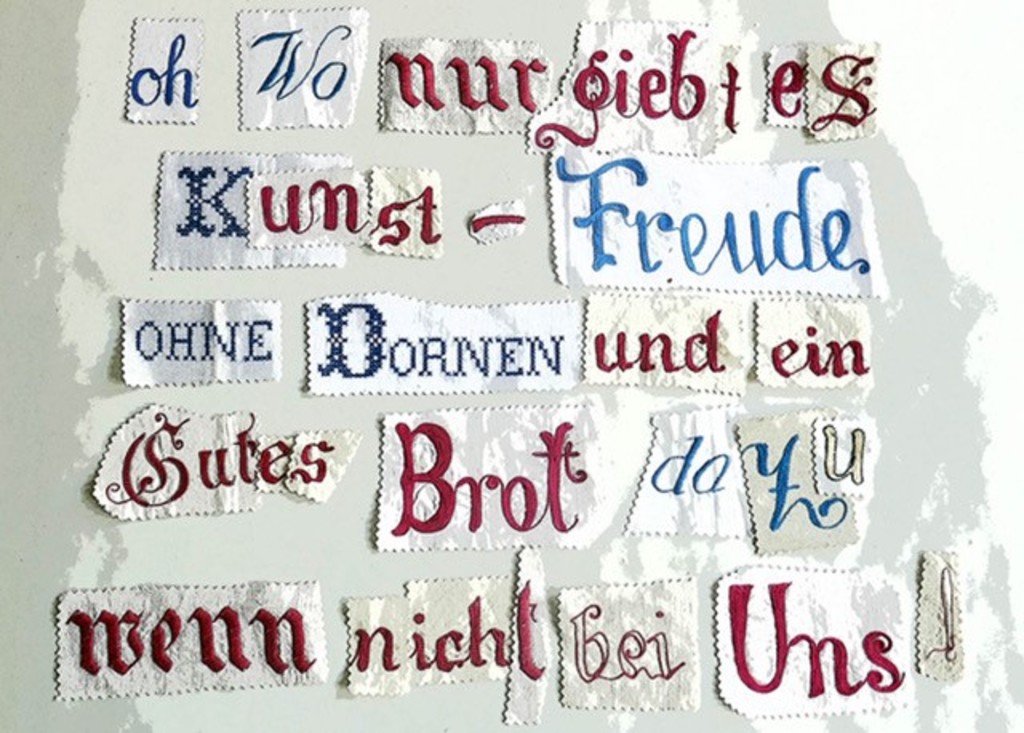 oh Wo nur giebt es
Kunst - Freude
OHNE DORNEN und ein
Gutes Brot dazu
wenn nicht bei Uns!